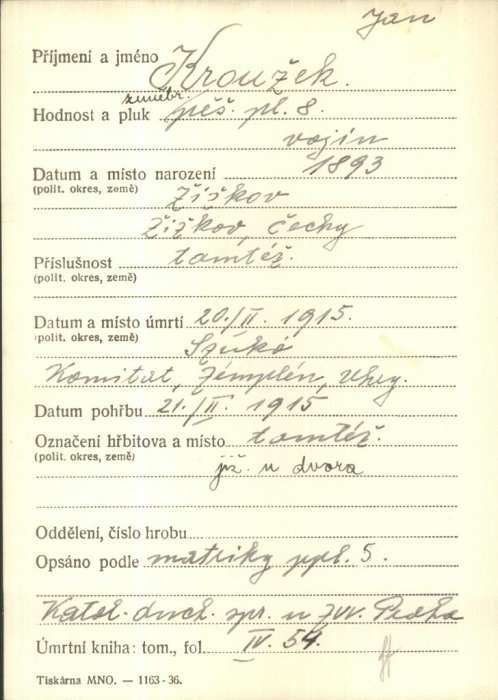 Jan
Příjmení a jméno Kroužek.
zeměbr.
Hodnost a pluk pěš. pl. 8.
vojín
Datum a místo narození 1893
(polit. okres, země) Žižkov
Žižkov, Čechy
Příslušnost tamtéž.
(polit. okres, země)
Datum a místo úmrtí 20./II. 1915.
(polit. okres, země) Szukó
Komitat, Zemplén, Uhry.
Datum pohřbu 21./II. 1915
Označení hřbitova a místo tamtéž.
(polit. okres, země)
již. u dvora
Oddělení, číslo hrobu
Opsáno podle matriky ppl. 5.
Katol. duch. spr. u ZVV. Praha
Úmrtní kniha: tom., fol. IV. 54.
Tiskárna MNO. — 1163-36.